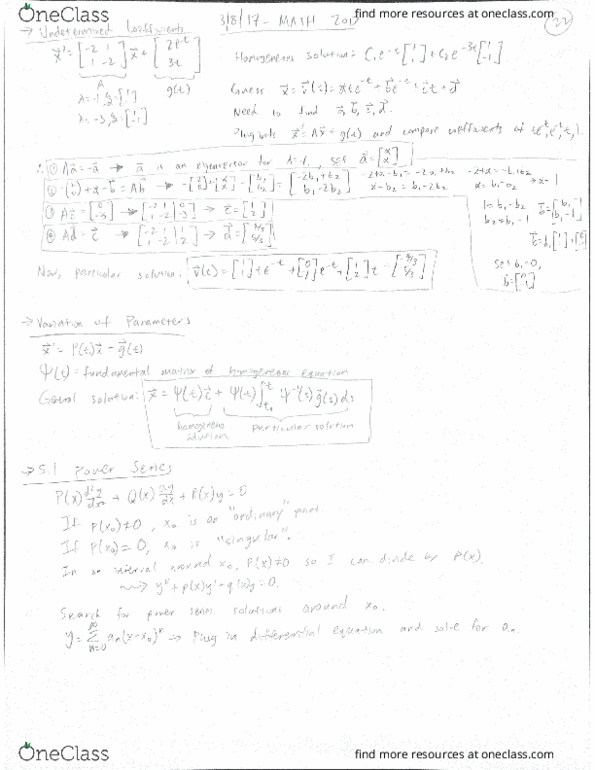 OneClass
find more resources at oneclass.com
3/8/17 - MATH
→ Undetermined Coefficients
x⃗' = [-2 1; 1 -2] x⃗ + [2e^-t; 3t]
A g(t)
λ=-1, ξ=[1; 1]
λ=-3, ξ=[1; -1]
Homogeneous solution: C₁e^-t [1; 1] + C₂e^-3t [1; -1]
Guess x⃗ = v⃗(t) = a⃗te^-t + b⃗e^-t + c⃗t + d⃗
Need to find a⃗, b⃗, c⃗, d⃗.
Plug into x⃗' = Ax⃗ + g(t) and compare coefficients of te^-t, e^-t, t, 1.
∴ ① Aa⃗ = -a⃗ → a⃗ is an eigenvector for λ=-1, set a⃗ = [α; α]
③ Ac⃗ = [0; -3] → [-2 1 | 0; 1 -2 | -3] → c⃗ = [1; 2]
④ Ad⃗ = c⃗ → [-2 1 | 1; 1 -2 | 2] → d⃗ = [-4/3; -5/3]
1 = b₁ - b₂
b₂ = b₁ - 1
b⃗ = [b₁; b₁-1]
Set b₁ = 0,
b⃗ = [0; -1]
Now, particular solution:
→ Variation of Parameters
x⃗' = P(t)x⃗ + g⃗(t)
Ψ(t) = fundamental matrix of homogeneous equation
General solution: x⃗ = Ψ(t)c⃗ + Ψ(t)∫_{t₀}^{t} Ψ⁻¹(s)g⃗(s)ds
homogeneous solution particular solution
→ 5.1 Power Series
P(x) d²y/dx² + Q(x) dy/dx + R(x)y = 0
If P(x₀)≠0, x₀ is an "ordinary" point.
If P(x₀)=0, x₀ is "singular".
In an interval around x₀, P(x)≠0 so I can divide by P(x).
⇝ y'' + p(x)y' + q(x)y = 0.
Search for power series solutions around x₀.
y = Σ_{n=0}^{∞} aₙ(x-x₀)ⁿ → Plug in differential equation and solve for aₙ.
OneClass
find more resources at oneclass.com